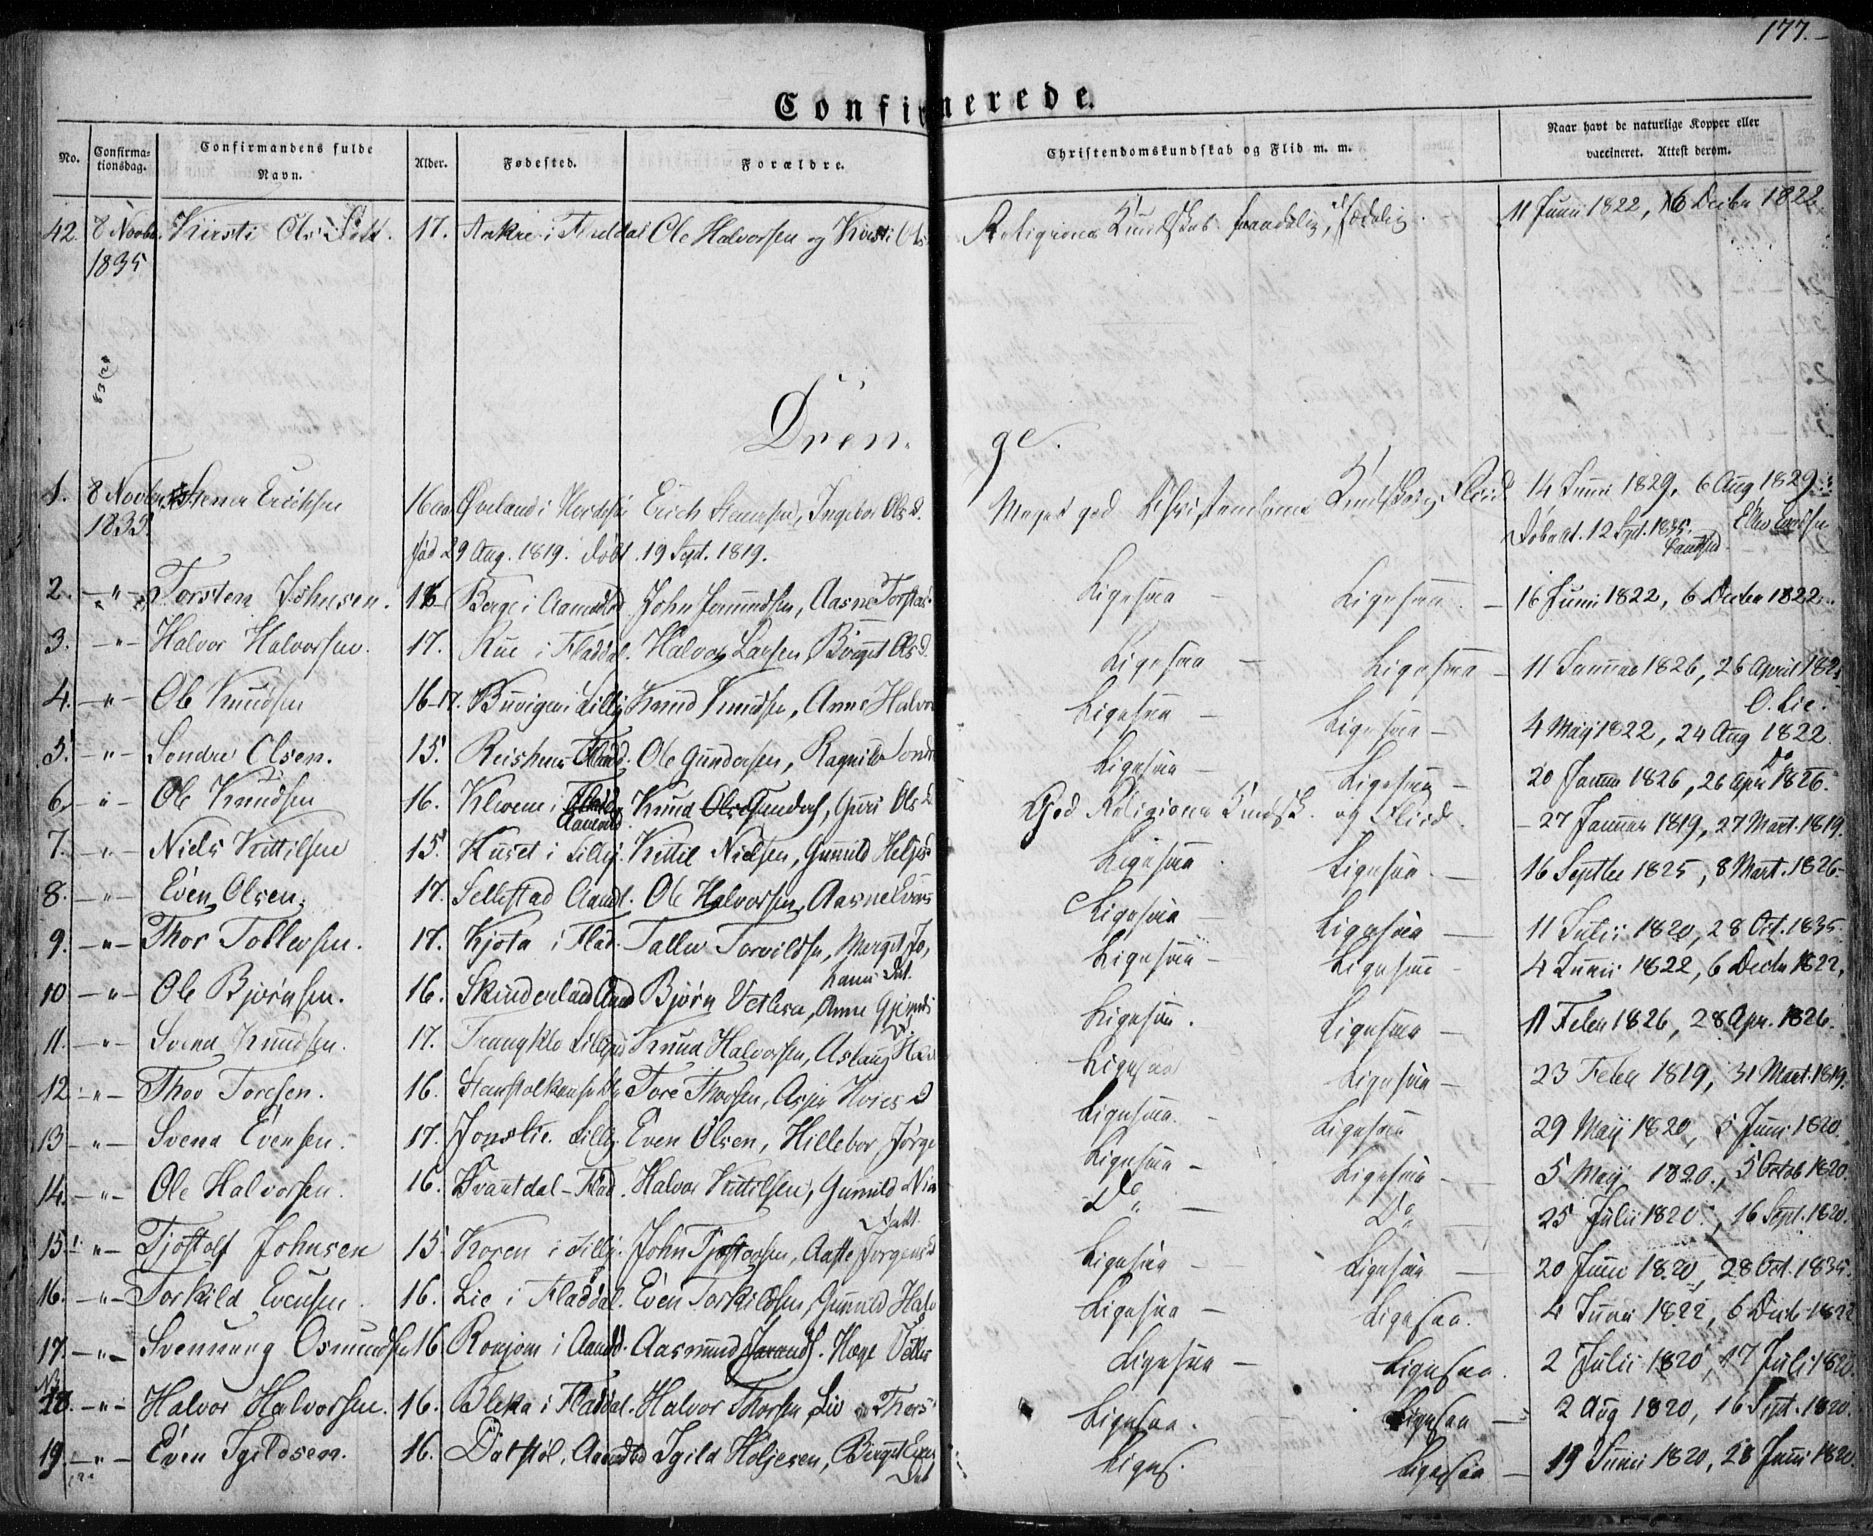 177.
Confirmerede.
No. Confirmationsdag. Confirmandens fulde Navn. Alder. Fødested. Forældre. Christendomskundskab og Flid m. m. Naar havt de naturlige Kopper eller vaccineret. Attest derom.
42. 8 Novbr. 1835 Kirsti Ols Datt. 17. Aakre i Fladdal Ole Halvorsen og Kirsti Ols Religions Kundskab, sædelig. 11 Junii 1822, 6 Decbr 1822
Dren- ge.
1. 8 Novbr. 1835. Stener Erichsen 16 Øverland i Erich Stenersen, Ingebor Ols D. Meget god Christendoms Kundskab og Fliid. 14 Junii 1829, 6 Aug 1829
fød 29 Aug. 1819. døbt 19 Sept. 1819. Døbeat. 12 Sept. 1835.
2. -"- Torsten Johnsen. 18 Berge i Aamdsd John Aasne Torstens Ligesaa Ligesaa. - 16 Junii 1822, 6 Decbr 1822.
3. -"- Halvor Halvorsen. 17. Rue i Fladdal. Halvor Larsen, Birgit Ols D. Ligesaa - Ligesaa - 11 Januar 1826, 26 April 182
4. -"- Ole Knudsen 16-17. Buvigen i Lillej Knud Knudsen, Anne Halvor Ligesaa - Ligesaa - 4 Maji 1822, 24 Aug 1822 O. Lie.
5. -"- Sondre Olsen. 15. Fladd. Ole Gundersen, Ragnild Sondr Ligesaa - Ligesaa - 20 Januar 1826, 26 Apr. 1826. Do
6. -"- Ole Knudsen 16. Kleven i Aamdsd. Knud Gunders, Guri Ols D God Religions Kundsk. og Fliid. - 27 Januar 1819, 27 Mart. 1819.
7. -"- Niels Kittilsen 15. Huset i Lillej. Kittil Nielsen, Gunnild Heljes Ligesaa Ligesaa. - 16 Septbr 1825, 8 Mart. 1826.
8. -"- Even Olsen. 17. Sellestad Aamd. Ole Halvorsen, Aasne Evens Ligesaa - Ligesaa - 11 Julii 1820, 28 Oct. 1835
9. -"- Thor Tollevsen. 17. Kjøta i Flad. Tallev Torvildsen, Margit Jo, hanni Dat. Ligesaa - Ligesaa - 4 Junii 1822, 6 Decbr 1822.
10 -"- Ole Bjørnsen. 16. Skinderland Aamd Bjørn Vetlesen, Anne Ligesaa. Ligesaa - 11 Febr 1826, 28 Apr. 1826.
11. -"- Svend Knudsen. 17. Lillejord Knud Halvorsen, Aslaug Ligesaa Ligesaa - 23 Febr 1819, 31 Mart. 1819.
12 -"- Thor Toresen. 16. Tore Thorsen, D Ligesaa. - Ligesaa 29 Maij 1820, 5 Juni 1820.
13 -"- Svend Evensen. 17. Jonslie. Lillej. Even Olsen, Hillebor Jørge Ligesaa - Ligesaa - 5 Maij 1820, 5 Octob 1820.
14. -"- Ole Halvorsen. 16. Kvantdal - Flad. Halvor Kittilsen, Gunnild Datt. Do - Do - 25 Julii 1820, 16 Sept. 1820.
15. -"- Tjostolf Johnsen 15. Koren i Lillej. John Tjostolsen, Aaste Jørgens D Ligesaa - Ligesaa - 20 Juni 1820, 28 Oct. 1835.
16. -"- Torkild Evensen. 16. Lie i Fladdal. Even Torkildsen, Gunnild Halv Ligesaa - Ligesaa. 4 Junii 1822, 6 Decb 1822
17. -"- Svennung Osmundsen 16 Ronjom i Aamd. Aasmund Hæge Ligesaa - Ligesaa. 2 Julii 1820, 17 Juli 1820.
18. -"- Halvor Halvorsen. 16. Bleka i Fladdal. Halvor Thorsen, Liv Thors Ligesaa. Ligesaa - 2 Aug 1820, 16 Sept. 1820.
19. -"- Even Igildsen. 16. Dalstøl, Aamdsd Igild Høljesen, Birgit Evens Dat Liges. Ligesaa - 19 Junii 1820, 28 Juni 1820.